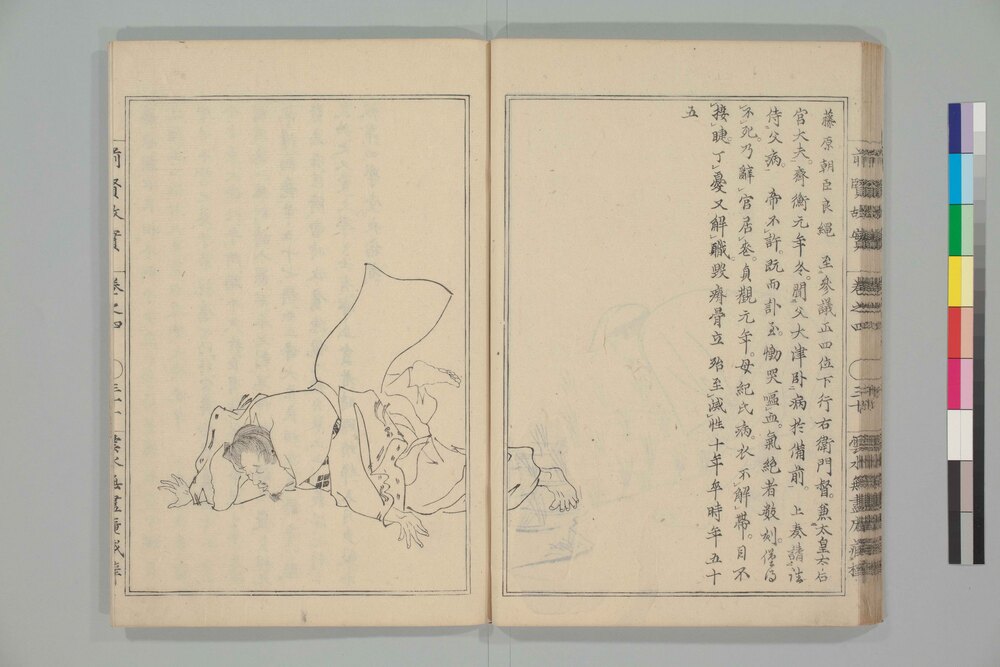 藤原朝臣良繩　至參議正四位下行右衛門督。兼太皇太后
宮大夫。齊衡元年冬。聞父大津卧病於備前。上奏請
侍父病。帝不許。既而訃至。慟哭嘔血。氣絶者數刻。僅得
不死乃辭官居喪。貞觀元年。母紀氏病。衣不解帶。目不
接睫。丁憂又解職。毀瘠骨立殆至滅性十年卒時年五十
五
前賢故實
卷之四
三十
雲水無盡庵藏